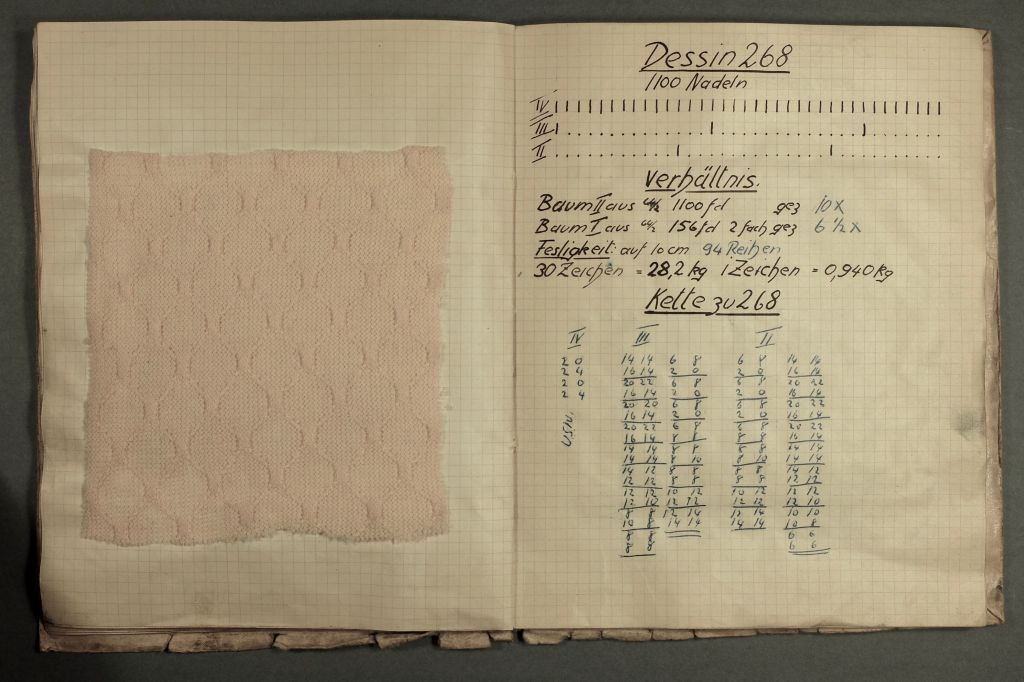 Dessin 268
1100 Nadeln
IV
III
II
Verhältnis.
Baum II aus 1100 fd gez 10x
Baum I aus 156 fd 2 fach gez 6 1/2 x
Festigkeit: auf 10 cm 94 Reihen
30 Zeichen = 28,2 kg 1 Zeichen = 0,940 kg
Kette zu 268
IV III II
2 0 14 14 6 8 6 8 14 14
2 4 16 14 2 0 2 0 16 14
2 0 20 22 6 8 6 8 20 22
2 4 16 14 2 0 2 0 16 14
20 20 6 8 6 8 20 22
16 14 2 0 2 0 16 14
20 22 6 8 6 8 20 22
usw. 16 14 8 8 8 8 16 14
14 14 8 8 8 8 14 14
14 14 8 10 8 10 14 14
14 12 8 8 8 8 14 12
12 12 8 8 8 8 12 12
12 12 10 12 10 12 12 12
12 10 12 12 12 12 12 10
8 8 12 14 12 14 10 10
10 8 14 14 14 14 10 8
8 8 6 6
8 8 6 6